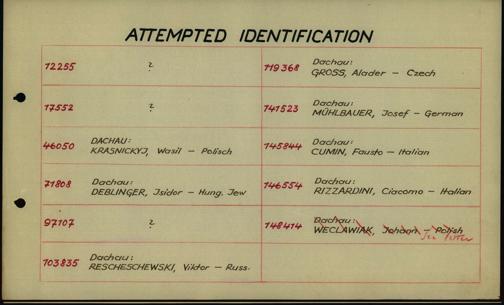 ATTEMPTED IDENTIFICATION
12255 ?
17552 ?
46050 DACHAU:
KRASNICKYJ, Wasil – Polisch
71808 Dachau:
DEBLINGER, Isidor – Hung. Jew
97107 ?
103835 Dachau:
RESCHESCHEWSKI, Viktor – Russ.
119368 Dachau:
GROSS, Alader – Czech
141523 Dachau:
MÜHLBAUER, Josef – German
145844 Dachau:
CUMIN, Fausto – Italian
146554 Dachau:
RIZZARDINI, Giacomo – Italian
148414 Dachau:
WECLAWIAK, Johann – Polish